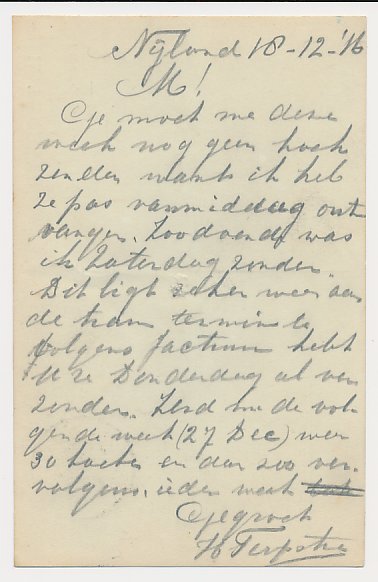 Nijland 18-12-'16
M!
Gje moet me deze
week nog geen koek
zenden want ik heb
ze pas vanmiddag ont
vangen. Zoodoende was
ik Zaterdag zonder.
Dit ligt zeker weer aan
de tram
volgens factuur hebt
U ze Donderdag al ver
zonden. Zend me de vol-
gende week (27 Dec) weer
30 koeken en dan zoo ver-
volgens, ieder week
Gegroet
H Terpstra